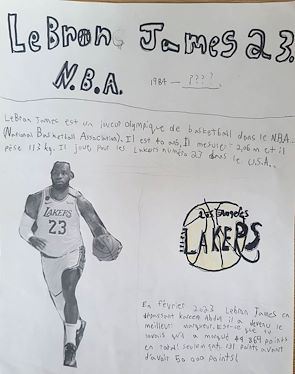 LeBron James 23.
N.B.A.
1984 — ????.
LeBron James est un joueur olympique de basketball dans le N.B.A.
(National Basketball Association). Il est 40 ans, Il mesure 2,06 m et il
pèse 113 kg. Il joue pour les Lakers numéro 23 dans le U.S.A..
LAKERS
23
Los Angeles
LAKERS
En février 2023 Lebron James en
dépassant Kareem Abdul il a devenu le
meilleur marqueur. Est-ce que tu
savais qu'il a marqué 49 869 points
en total! seulement 131 points avant
d'avoir 50 000 points!